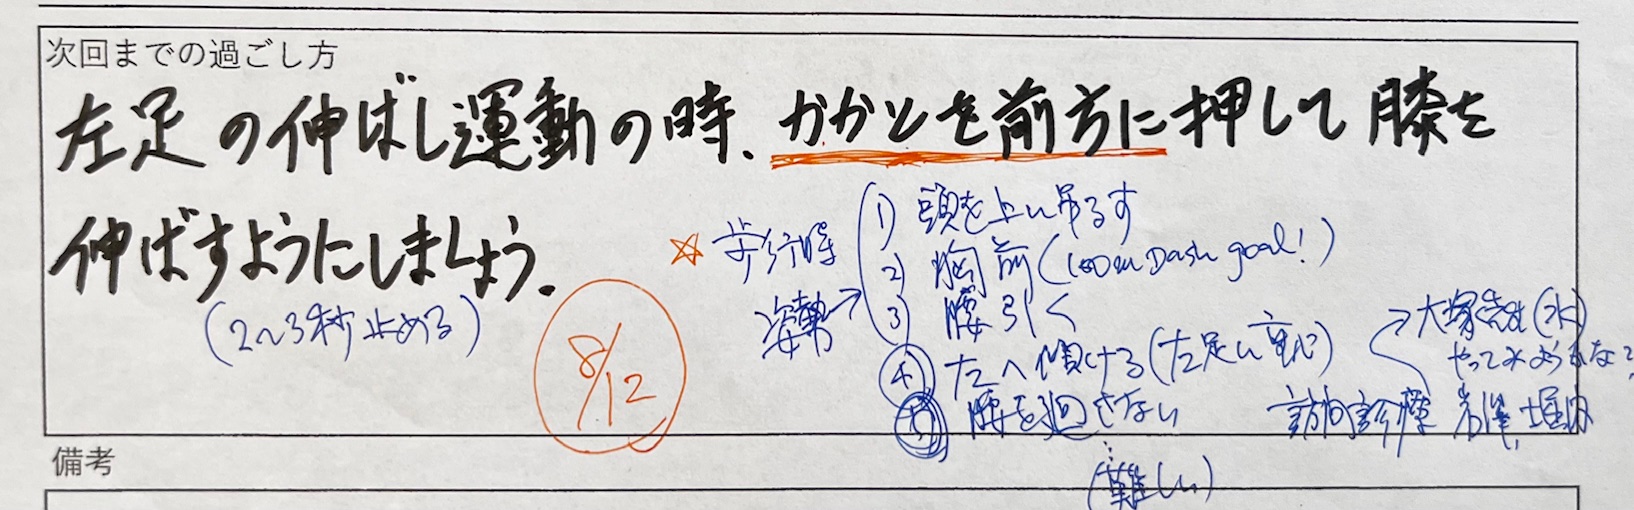 次回までの過ごし方
左足の伸ばし運動の時、かかとを前方に押して膝を
伸ばすようにしましょう。
(2~3秒止める)
8/12
☆ 歩行時
姿勢→
1) 頭を上に吊るす
2) 胸前(100m Dash goal!)
3) 腰引く
④ 左へ傾ける(左足に重心)
⑤ 腰を廻さない
(難しい)
→大塚先生(水)
やってみようかな?
訪問診療 岩澤, 堀
備考